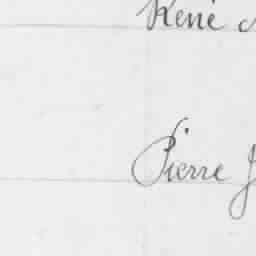 René
Pierre